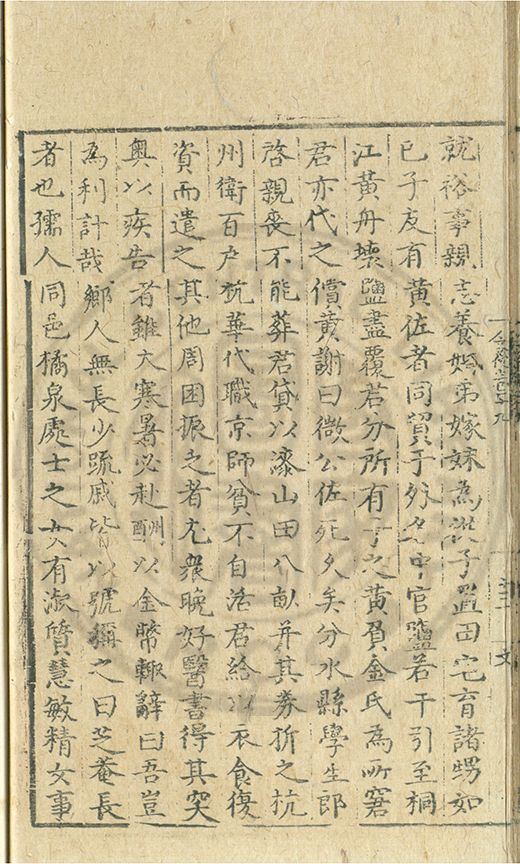 就裕事親志養婚弟嫁妹為從子置田宅育諸甥如
已子友有黃佐者同貿于外名中官鹽若干引至桐
江黃舟壞鹽盡覆君分所有予之黃負金氏為所窘
君亦代之償黃謝曰微公佐死久矣分水縣學生郎
啓親喪不能葬君貸以漆山田八畝并其券折之杭
州衛百戶杭華代職京師貧不自活君給以衣食復
資而遣之其他周困振乏者尤衆晚好醫書得其突
奧以疾告者雖大寒暑必赴酬以金幣輙辭曰吾豈
為利計哉鄉人無長少踈戚皆以號稱之曰芝菴長
者也孺人同邑橘泉處士之女有淑質慧敏精女事